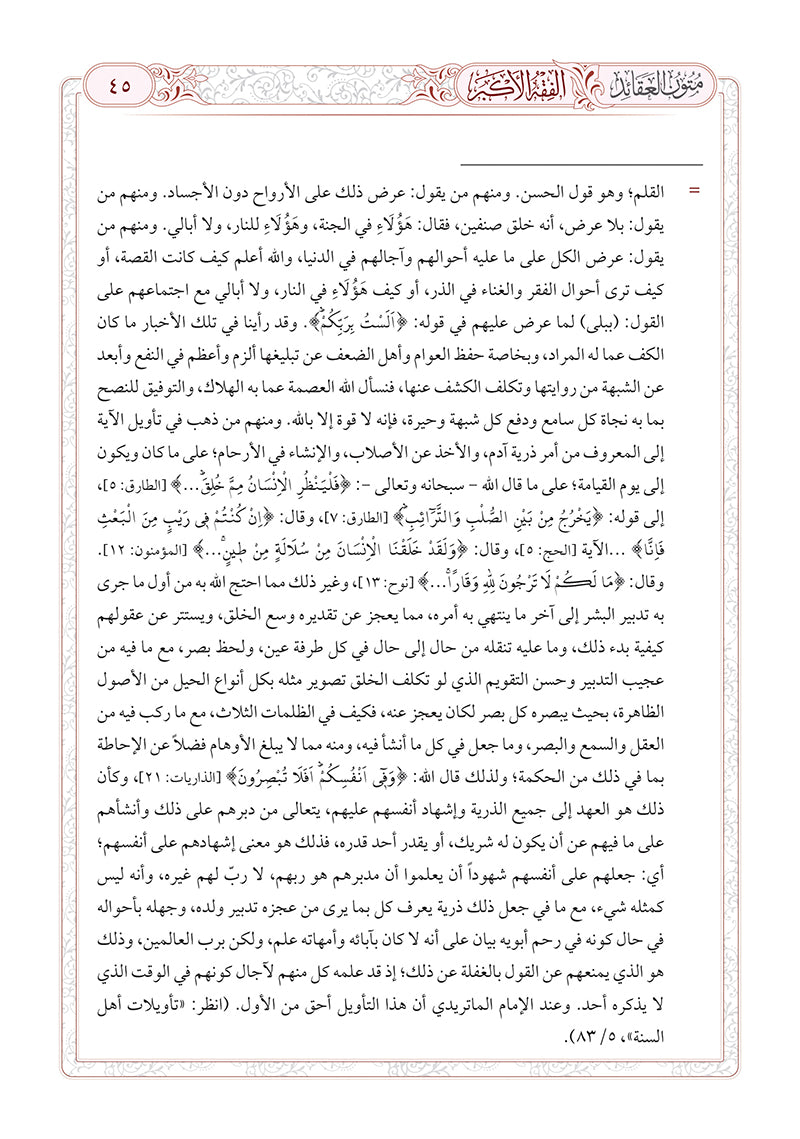 متون العقائد الفقه الأكبر ٤٥
= القلم؛ وهو قول الحسن. ومنهم من يقول: عرض ذلك على الأرواح دون الأجساد. ومنهم من
يقول: بلا عرض، أنه خلق صنفين، فقال: هَؤُلَاءِ في الجنة، وهَؤُلَاءِ للنار، ولا أبالي. ومنهم من
يقول: عرض الكل على ما عليه أحوالهم وآجالهم في الدنيا، والله أعلم كيف كانت القصة، أو
كيف ترى أحوال الفقر والغناء في الذر، أو كيف هَؤُلَاءِ في النار، ولا أبالي مع اجتماعهم على
القول: (ببلى) لما عرض عليهم في قوله: ﴿اَلَسْتُ بِرَبِّكُمْۜ﴾. وقد رأينا في تلك الأخبار ما كان
الكف عما له المراد، وبخاصة حفظ العوام وأهل الضعف عن تبليغها ألزم وأعظم في النفع وأبعد
عن الشبهة من روايتها وتكلف الكشف عنها، فنسأل الله العصمة عما به الهلاك، والتوفيق للنصح
بما به نجاة كل سامع ودفع كل شبهة وحيرة، فإنه لا قوة إلا بالله. ومنهم من ذهب في تأويل الآية
إلى المعروف من أمر ذرية آدم، والأخذ عن الأصلاب، والإنشاء في الأرحام؛ على ما كان ويكون
إلى يوم القيامة؛ على ما قال الله – سبحانه وتعالى –: ﴿فَلْيَنْظُرِ الْاِنْسَانُ مِمَّ خُلِقَۜ...﴾ [الطارق: ٥]،
إلى قوله: ﴿يَخْرُجُ مِنْ بَيْنِ الصُّلْبِ وَالتَّرَٓائِبِۜ﴾ [الطارق: ٧]، وقال: ﴿اِنْ كُنْتُمْ فِي رَيْبٍ مِنَ الْبَعْثِ
فَاِنَّا﴾ ...الآية [الحج: ٥]، وقال: ﴿وَلَقَدْ خَلَقْنَا الْاِنْسَانَ مِنْ سُلَالَةٍ مِنْ طِينٍۚ...﴾ [المؤمنون: ١٢].
وقال: ﴿مَا لَكُمْ لَا تَرْجُونَ لِلّٰهِ وَقَارًاۚ...﴾ [نوح: ١٣]، وغير ذلك مما احتج الله به من أول ما جرى
به تدبير البشر إلى آخر ما ينتهي به أمره، مما يعجز عن تقديره وسع الخلق، ويستتر عن عقولهم
كيفية بدء ذلك، وما عليه تنقله من حال إلى حال في كل طرفة عين، ولحظ بصر، مع ما فيه من
عجيب التدبير وحسن التقويم الذي لو تكلف الخلق تصوير مثله بكل أنواع الحيل من الأصول
الظاهرة، بحيث يبصره كل بصر لكان يعجز عنه، فكيف في الظلمات الثلاث، مع ما ركب فيه من
العقل والسمع والبصر، وما جعل في كل ما أنشأ فيه، ومنه مما لا يبلغ الأوهام فضلاً عن الإحاطة
بما في ذلك من الحكمة؛ ولذلك قال الله: ﴿وَفِي اَنْفُسِكُمْۜ اَفَلَا تُبْصِرُونَ﴾ [الذاريات: ٢١]، وكأن
ذلك هو العهد إلى جميع الذرية وإشهاد أنفسهم عليهم، يتعالى من دبرهم على ذلك وأنشأهم
على ما فيهم عن أن يكون له شريك، أو يقدر أحد قدره، فذلك هو معنى إشهادهم على أنفسهم؛
أي: جعلهم على أنفسهم شهوداً أن يعلموا أن مدبرهم هو ربهم، لا ربّ لهم غيره، وأنه ليس
كمثله شيء، مع ما في جعل ذلك ذرية يعرف كل بما يرى من عجزه تدبير ولده، وجهله بأحواله
في حال كونه في رحم أبويه بيان على أنه لا كان بآبائه وأمهاته علم، ولكن برب العالمين، وذلك
هو الذي يمنعهم عن القول بالغفلة عن ذلك؛ إذ قد علمه كل منهم لآجال كونهم في الوقت الذي
لا يذكره أحد. وعند الإمام الماتريدي أن هذا التأويل أحق من الأول. (انظر: «تأويلات أهل
السنة»، ٥/ ٨٣).